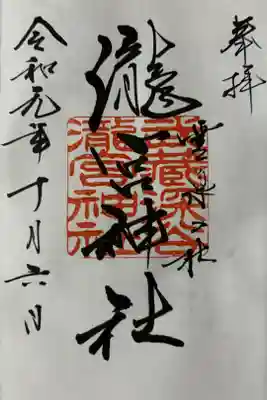 奉拝
瀧宮神社
武蔵深谷
瀧宮神社
令和元年十月六日